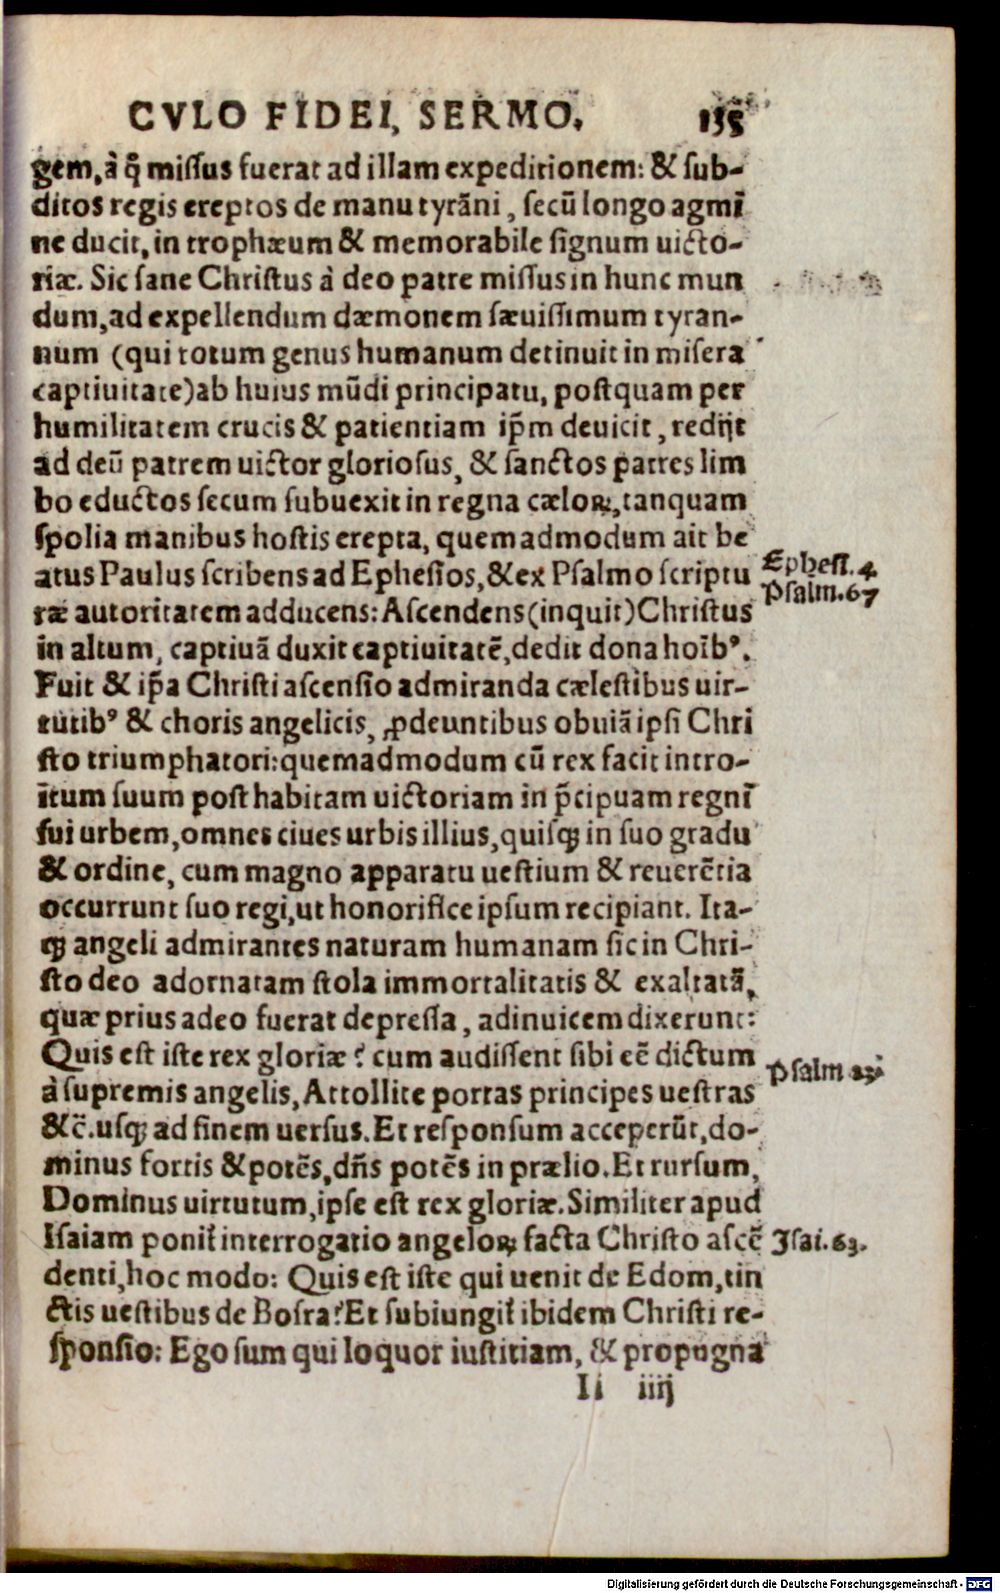 CVLO FIDEI, SERMO. 155
gem, à q̃ missus fuerat ad illam expeditionem: & sub-
ditos regis ereptos de manu tyrãni, secũ longo agmĩ
ne ducit, in trophæum & memorabile signum uicto-
riæ. Sic sane Christus à deo patre missus in hunc mun
dum, ad expellendum dæmonem sæuissimum tyran-
num (qui totum genus humanum detinuit in misera
captiuitate) ab huius mũdi principatu, postquam per
humilitatem crucis & patientiam ip̃m deuicit, redijt
ad deũ patrem uictor gloriosus, & sanctos patres lim
bo eductos secum subuexit in regna cæloꝝ, tanquam
spolia manibus hostis erepta, quemadmodum ait be
atus Paulus scribens ad Ephesios, & ex Psalmo scriptu
Ephess. 4
Psalm. 67
ræ autoritatem adducens: Ascendens (inquit) Christus
in altum, captiuã duxit captiuitatẽ, dedit dona hoĩbꝰ.
Fuit & ip̃a Christi ascensio admiranda cælestibus uir-
tutibꝰ & choris angelicis, ꝓdeuntibus obuiã ipsi Chri
sto triumphatori: quemadmodum cũ rex facit intro-
itum suum post habitam uictoriam in p̃cipuam regni
sui urbem, omnes ciues urbis illius, quisqꝫ in suo gradu
& ordine, cum magno apparatu uestium & reuerẽtia
occurrunt suo regi, ut honorifice ipsum recipiant. Ita-
qꝫ angeli admirantes naturam humanam sic in Chri-
sto deo adornatam stola immortalitatis & exaltatã,
quæ prius adeo fuerat depressa, adinuicem dixerunt:
Quis est iste rex gloriæ? cum audissent sibi eẽ dictum
Psalm 23
à supremis angelis, Attollite portas principes uestras
&c̃. usqꝫ ad finem uersus. Et responsum acceperũt, do-
minus fortis & potẽs, dñs potẽs in prælio. Et rursum,
Dominus uirtutum, ipse est rex gloriæ. Similiter apud
Isaiam ponit̃ interrogatio angeloꝝ facta Christo ascẽ
Isai. 63.
denti, hoc modo: Quis est iste qui uenit de Edom, tin
ctis uestibus de Bosra? Et subiungit̃ ibidem Christi re-
sponsio: Ego sum qui loquor iustitiam, & propugna
Ii iiij
Digitalisierung gefördert durch die Deutsche Forschungsgemeinschaft - DFG